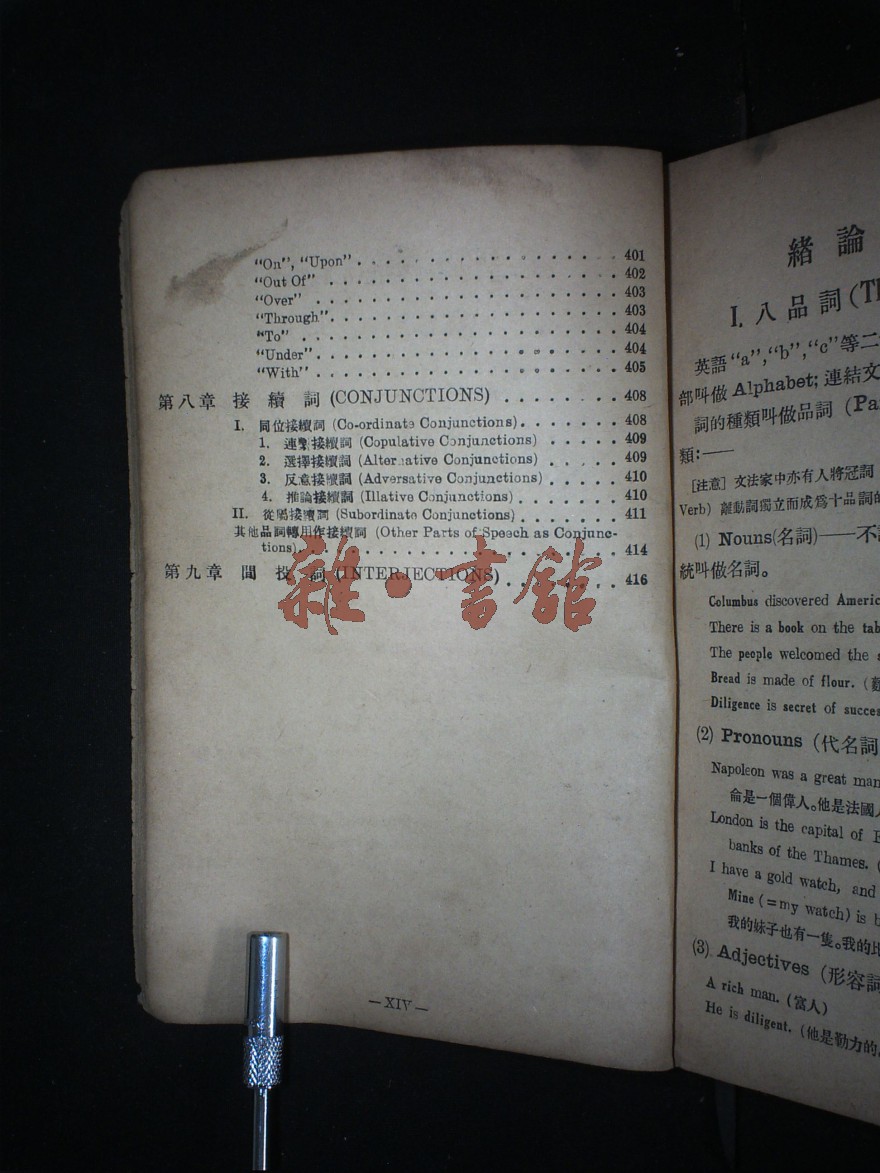 "On", "Upon" 401
"Out Of" 402
"Over" 403
"Through" 403
"To" 404
"Under" 404
"With" 405
第八章 接續詞 (CONJUNCTIONS) 408
I. 同位接續詞 (Co-ordinate Conjunctions) 408
1. 連繫接續詞 (Copulative Conjunctions) 409
2. 選擇接續詞 (Alternative Conjunctions) 409
3. 反意接續詞 (Adversative Conjunctions) 410
4. 推論接續詞 (Illative Conjunctions) 410
II. 從屬接續詞 (Subordinate Conjunctions) 411
其他品詞轉用作接續詞 (Other Parts of Speech as Conjunc-
tions) 414
第九章 間投詞 (INTERJECTIONS) 416
雜·書館
—XIV—
緒論
I. 八品詞
英語"a","b","c"等二
部叫做 Alphabet; 連結文
詞的種類叫做品詞
類:——
[注意] 文法家中亦有人將冠詞
Verb) 離動詞獨立而成爲十品詞的
(1) Nouns(名詞)——不
統叫做名詞。
Columbus discovered
There is a book on the
The people welcomed the
Bread is made of flour.
Diligence is secret of
(2) Pronouns (代名詞
Napoleon was a great man
侖是一個偉人。他是法國
London is the capital of
banks of the Thames.
I have a gold watch, and
Mine (=my watch) is
我的妹子也有一隻。我的比
(3) Adjectives (形容詞
A rich man. (富人)
He is diligent. (他是勤力的。